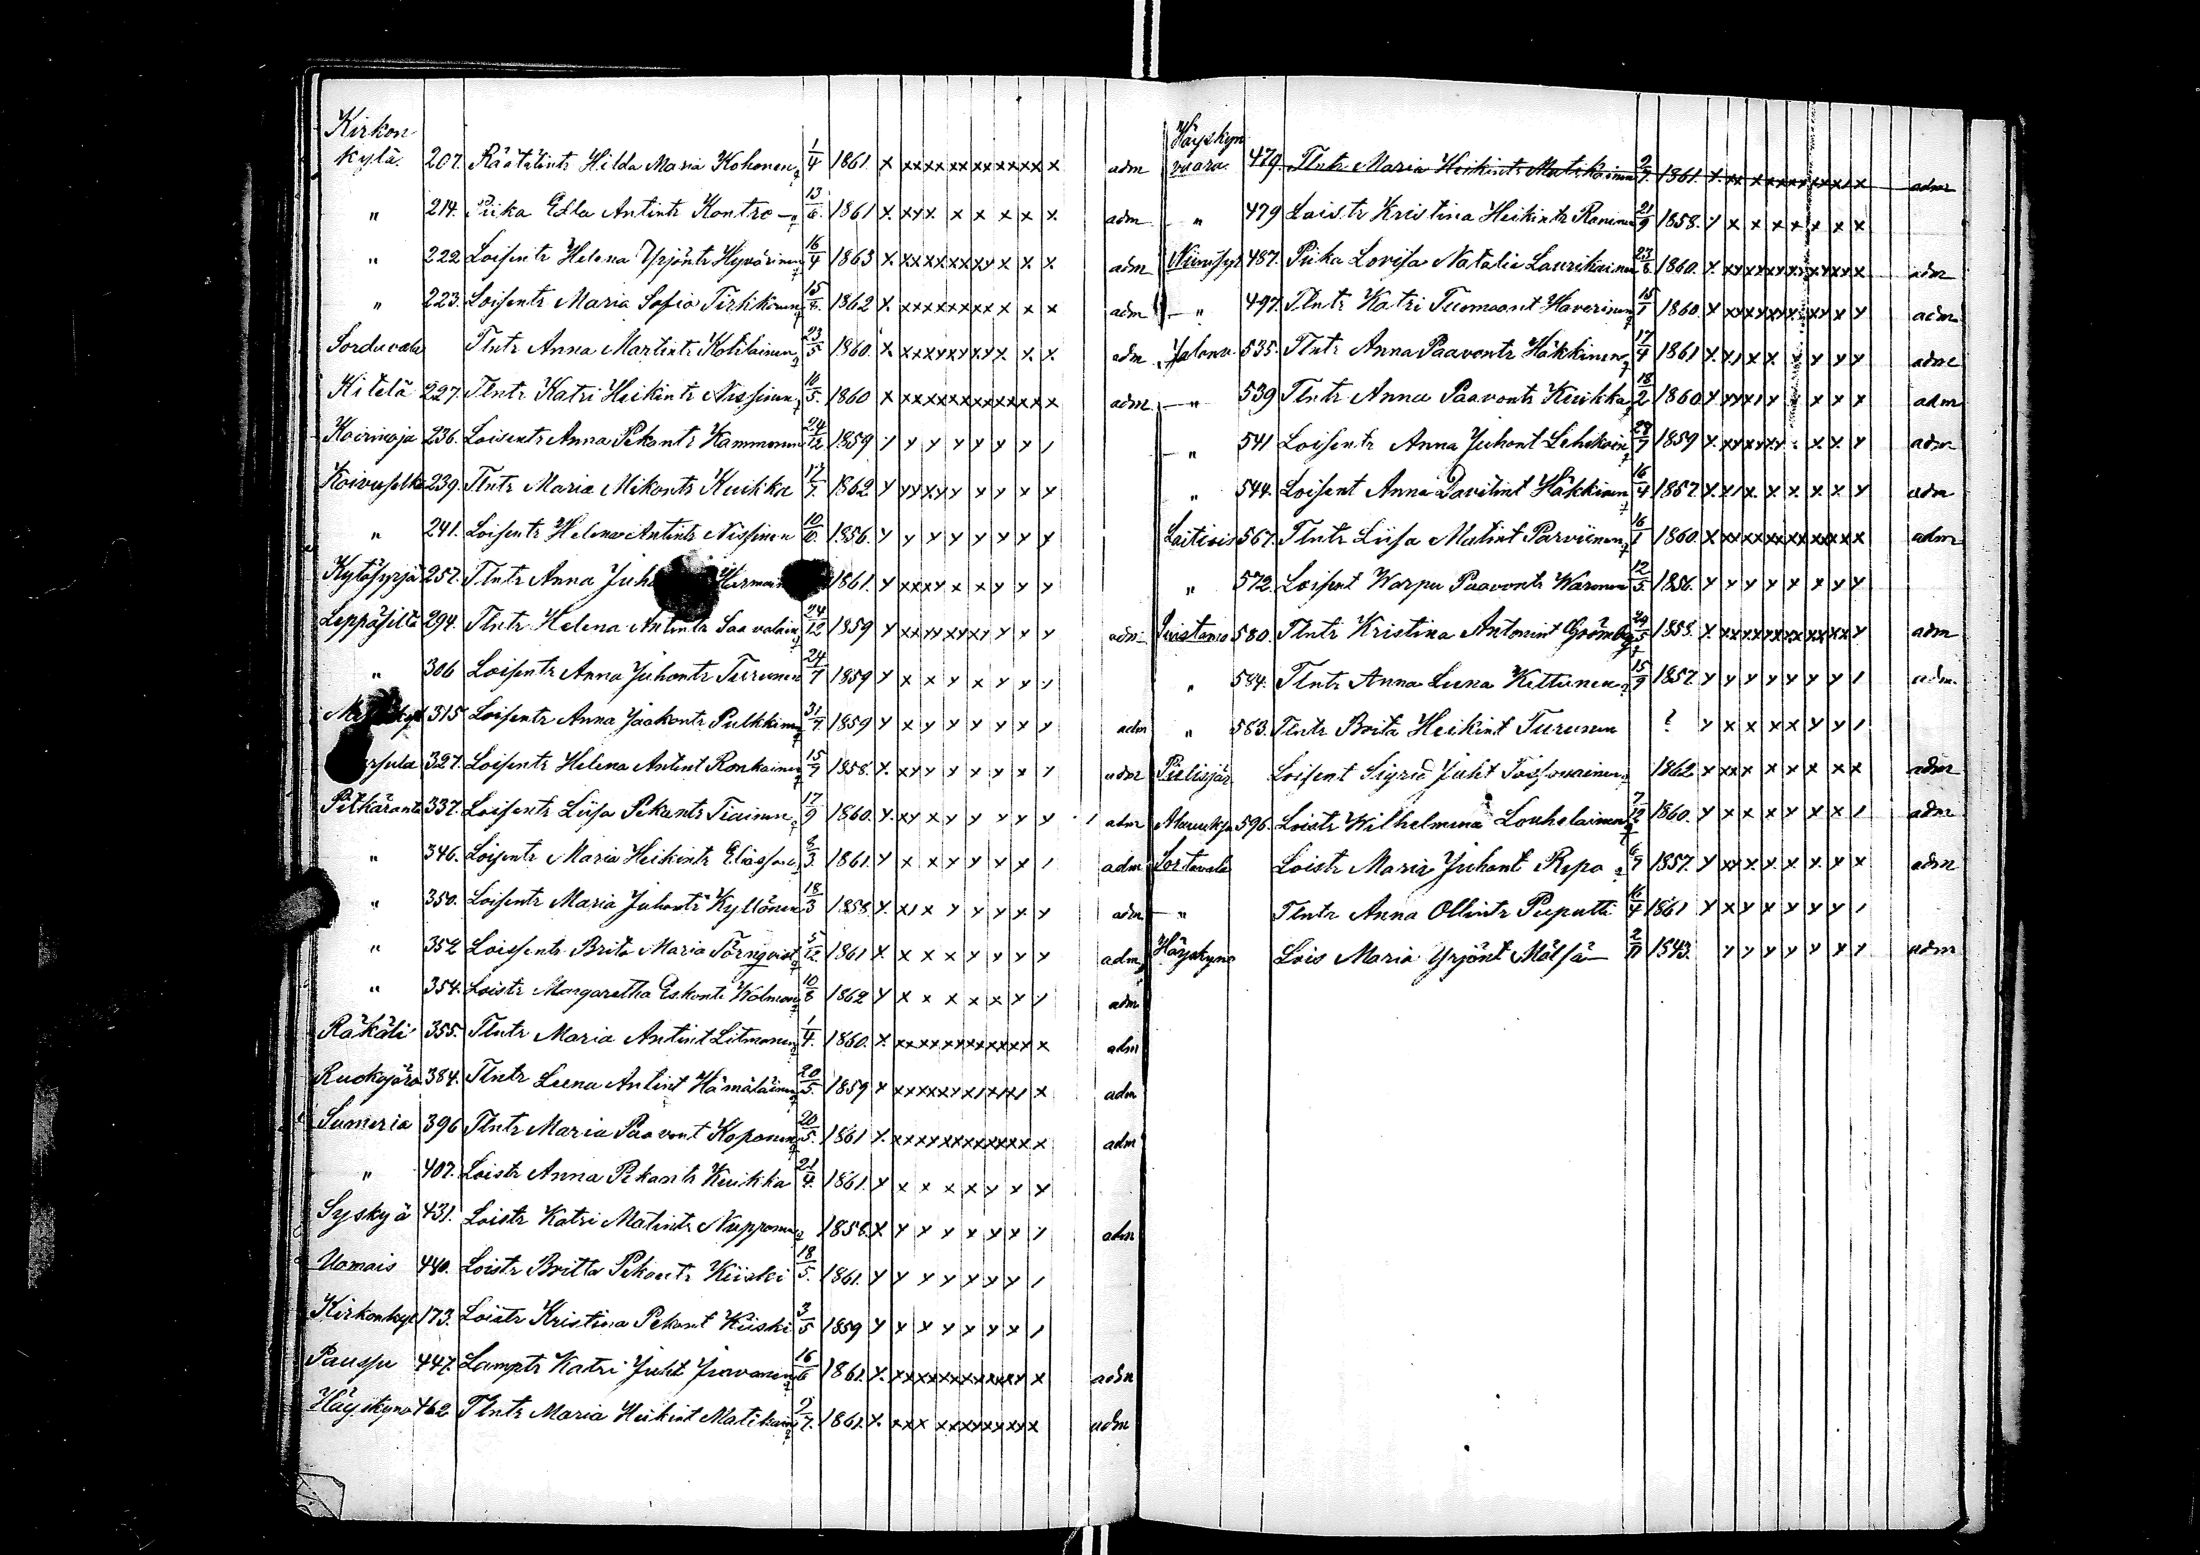 Kirkon
kylä. 207. Räätälintr Hilda Maria Kohonen 1/4 1861. x xxxxxxxxxxxx x adm
" 214. Piika Edla Antintr Kontro 13/6. 1861 x. xyx x x x x x adm
" 222 Loisentr Helena Yrjöntr Hyvärinen 16/4 1863 x. xxxxxxxxy x x adm
" 223. Loisentr Maria Sofia Tirkkonen 1862 x. xxxxxxxxx x x adm
Sorduvala Tlntr Anna Martintr Kohlainen 23/5 1860. x xxxyxyxyx x x adm
Kitelä 227. Tlntr Katri Heikintr Nissinen 10/5. 1860 x xxxxxxxxxxxxx adm
Koirinoja 236. Loisentr Anna Pekantr Kammonen 24/12 1859 y y y y y y y /
Koivuselkä 239. Tlntr Maria Mikontr Kuikka 17/7. 1862 y yyxyy y y y y
" 241. Loisentr Helena Antintr Nissinen 10/10. 1856. y y y y y y y y
Kytösyrjä 257. Tlntr Anna 1861. y xxxy x x y y y
Leppäsilta 294. Tlntr Helena Antintr Saavalain 24/12 1859 y xxyyxyxy y y y adm
" 306 Loisentr Anna Juhontr Turunen 24/7 1859 y x x y x y y /
315 Loisentr Anna Jaakontr Pulkkinen 31/7 1859 y x y y y y y y adm
327. Loisentr Helena Antint Ronkainen 15/7 1858. y. xyy y y x y / adm
Pitkäranta 337. Loisentr Liisa Pekantr Tiainen 17/9 1860. y. xy x y y y y y adm
" 346. Loisentr Maria Heikintr Eliasson 8/3. 1861. y x x y y y x / adm
" 350. Loisentr Maria Juhontr Kyllönen 18/3 1858. y. x/ x y y y y y adm
" 352 Loisentr Brita Maria Törnqvist 5/12. 1861 x. x x x y y y y adm
" 354. Loistr Margaretha Eskontr Wolmon 10/8 1862 y x x x x x y y adm
Räkäli 355. Tlntr Maria Antint Litmanen 1/4. 1860. x. xxxxxxxxxxxxx x adm
Ruokojärv 384. Tlntr Leena Antint Hämäläinen 20/5. 1859 y xxxxxyx/xyx/ x adm
Sumeria 396 Tlntr Maria Paavont Koponen 20/5. 1861 x. xxxyxxxxxxxx x adm
" 407. Loistr Anna Pekantr Kuikka 21/4. 1861. y x x x x y x y
Syskyä 431. Loistr Katri Matintr Nupponen 1858 x y y y y y y / adm
Uomais 440. Loistr Britta Pekantr Kiiski 18/5. 1861. y y y y y y y /
Kirkonkyl 173. Loistr Kristina Pekant Kiiski 3/5 1859 y y y y y y y /
Paussu 447. Lamptr Katri Juht 16/6 1861. x. xxxxxxxxxxy x adm
Häyskyn 462 Tlntr Maria Heikint Matikain 2/7. 1861. x. xxx xxyxyxxx x adm
Häyskyn
vaara. 479. Tlntr Maria Heikintr Matikainen 2/7. 1861. x. xx x xxxxxxx/x x adm
" 479 Loistr Kristina Heikintr Raninen 21/9 1858. y x x x x x x x
487. Piika Lovisa Natalia Laurikainen 23/8 1860. x. xyxxyxxxxxxx x adm
" 497. Tlntr Katri Tuomaant Haverinen 15/1 1860. y xxyxyxyxxyy y adm
535. Tlntr Anna Paavontr Häkkinen 17/4 1861 x. x/ x x x y y y adm
" 539 Tlntr Anna Paavontr Kuikka 18/2 1860 y xyx/ y x x x adm
" 541 Loisentr Anna Juhont Lehikoin 28/7 1859 x. xyxxyy x x y adm
" 544. Loisent Anna Davitint Häkkinen 16/4 1857. x. x/ x. x x. x x y adm
567. Tlntr Liisa Matint Parviinen 16/1 1860. x xxxxxxxxxxx x adm
" 572. Loisent Warpu Paavontr Waronen 12/5. 1856. y y y y y y y y
580. Tlntr Kristina Antonint Grönberg 29/5 1858. x. xxxxyxxxxxxx y adm
" 584. Tlntr Anna Leena Kettunen 15/9 1857 y y y y y y y / adm.
" 583. Tlntr Brita Heikint Turunen ? y x x x x y y /
Pielisjär Loisent Sigrid Juht Toissonainen 1862 x xxx x x x x x adm
596. Loistr Wilhelmina Louhelainen 7/12 1860. y x x x y x x / adm
Sortavala Loistr Maria Juhont Repo 6/7 1857. y xxx. x. x x x x adm
" Tlntr Anna Ollintr Piiputti 16/4 1861 y x y x y y y /
Häyskyn Lois Maria Yrjönt Mälsä 2/11 1843. y y y y y y y adm